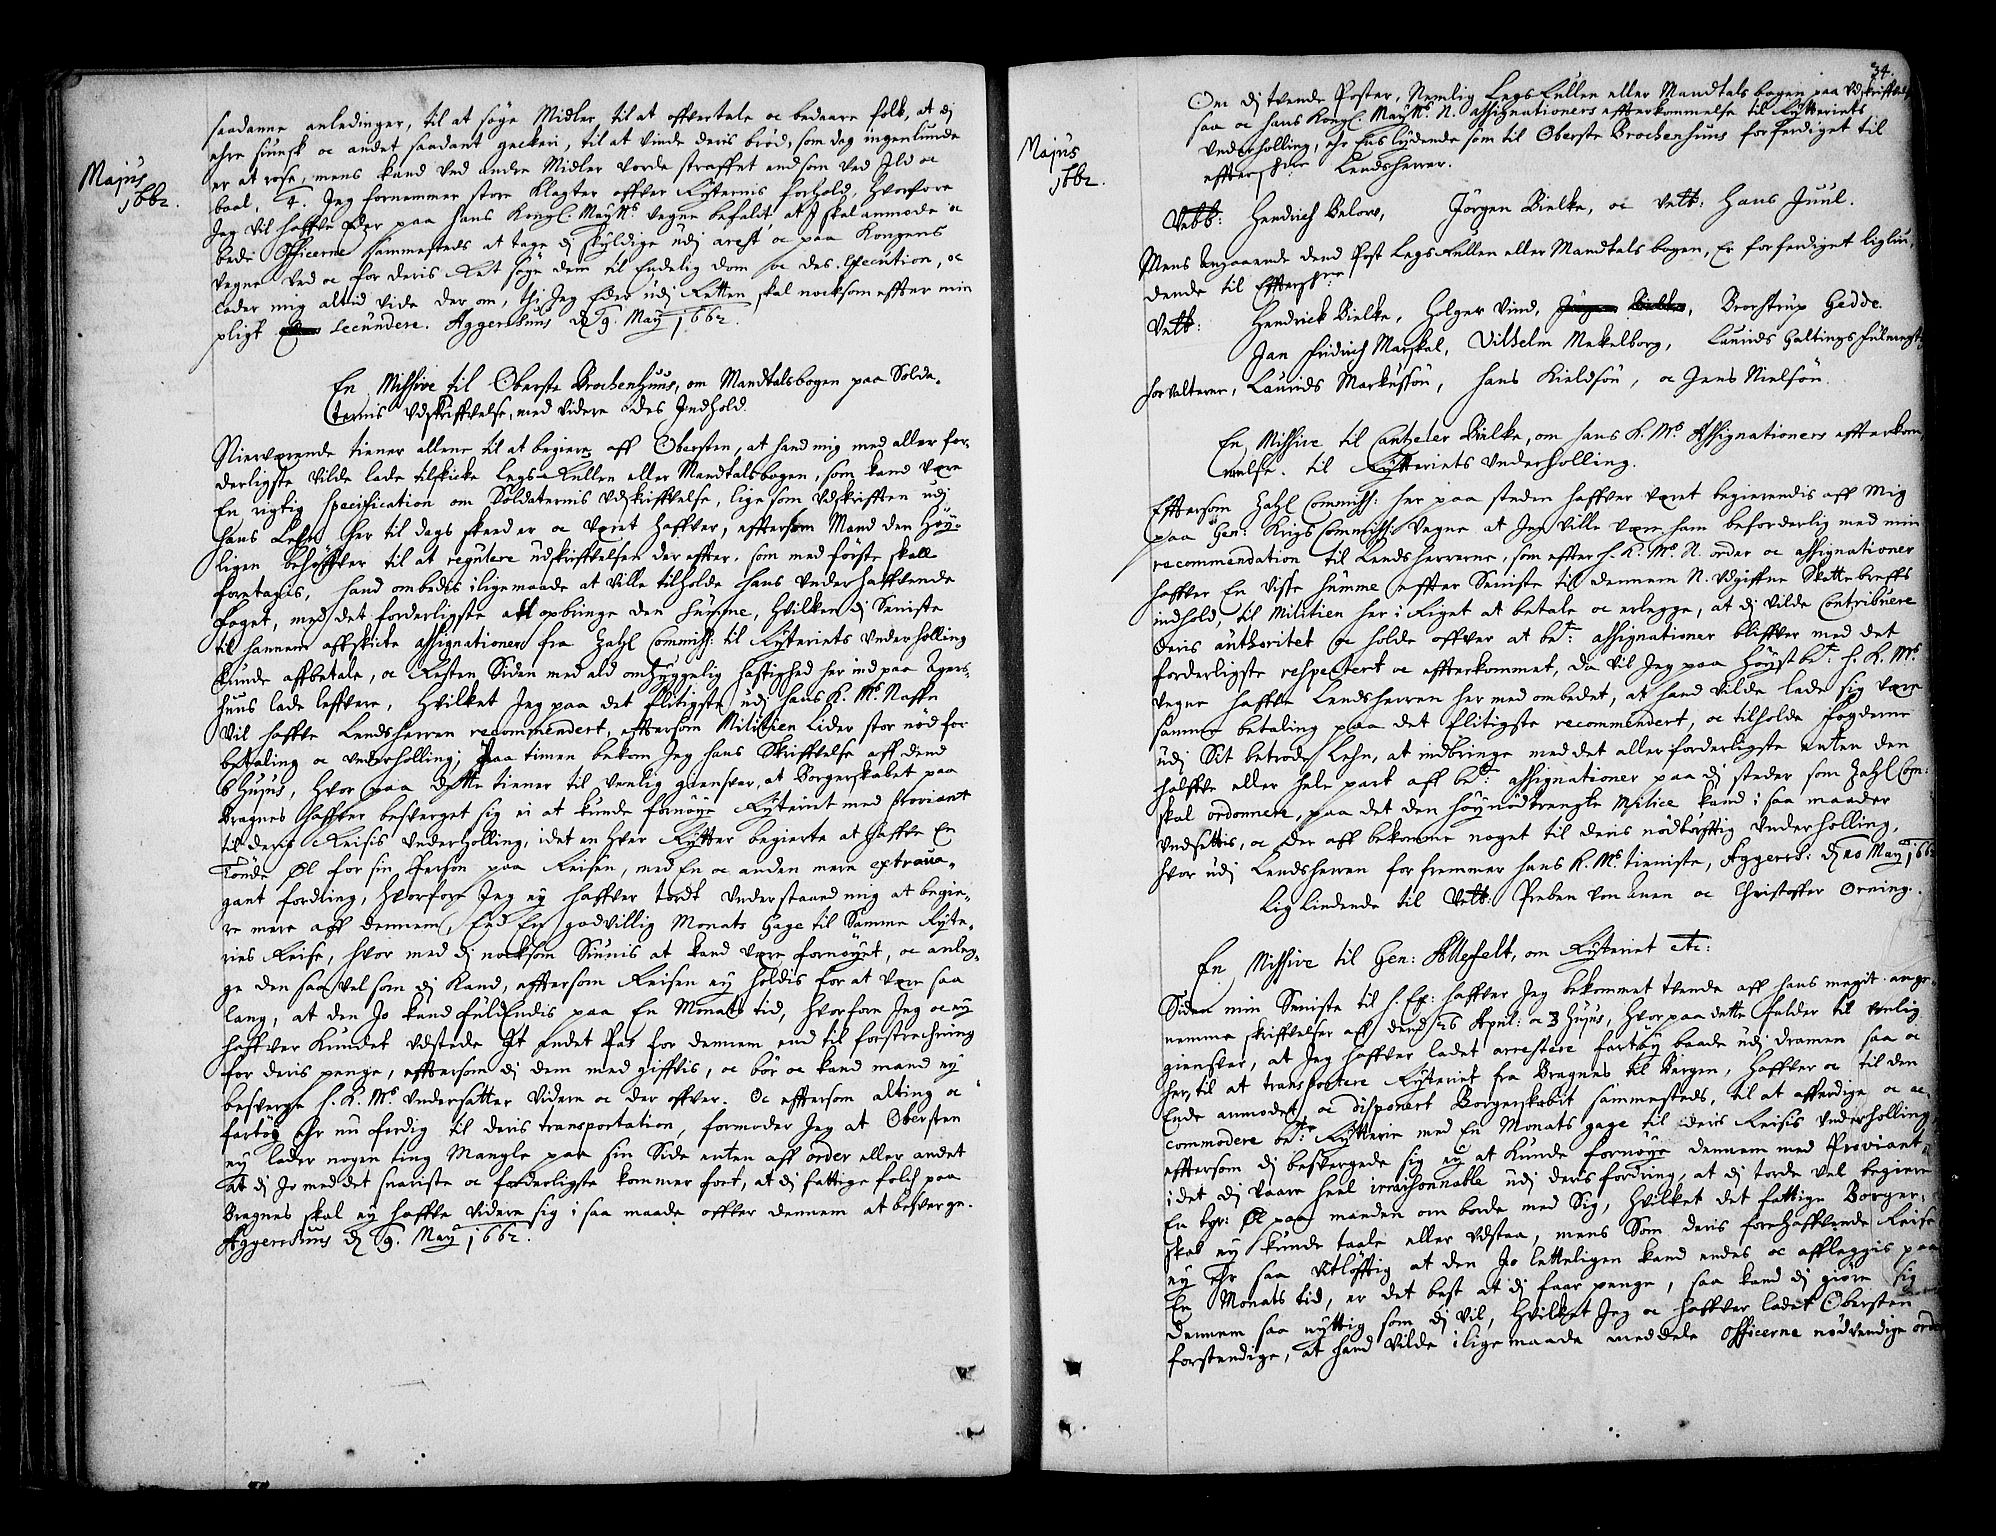 Majus
1662.
saadanne anledinger, til at søge Midler, til at offvertale oc bedaare folck, at dj
ehre siunsk oc andet saadant geckeri, til at vinde deris brød, som dog ingenlunde
er at rose, mens kand ved andre Midler vorde straffet end som ved Ild oc
baal. 4. Jeg fornemmer store Klagter offver Rytternis forhold, hvorfore
Jeg vil haffve Eder paa hans Kongl: Maytts vegne befalet, at J skal anmode oc
bede Officerne sammesteds at tage dj skyldige udj arrest, oc paa Kongens
vegne ved oc for deris Ret søge dem til Endelig dom oc des Execution, oc
lader mig altid vide der om, thi Jeg Eder udj Retten skal nocksom effter min
pligt secundere. Aggershuus d 9. May 1662.
En Missive til Oberste Brochenhuus, om Mandtalsbogen paa Solda-
ternis Udskriffvelse, med videre des Indhold.
Nerværende tiener allene til at begiere aff Obersten, at hand mig med aller for-
derligste vilde lade tilskicke Legs-Rullen eller Mandtalsbogen, som kand være
En rigtig specification om Soldaternis Udskriffvelse, lige som Udskrifften udj
hans Lehn her til dags skeed er oc veret haffver, effter som Mand den høy-
ligen behøffver til at regulere udskriffvelsen der effter, som med første skall
foretagis, hand ombedis iligemaade at ville tilholde hans underhaffvende
foget, med det forderligste at opbringe den summe, hvilken dj Seniste
til hannem affskickte assignationer fra Zahl Commiss: til Rytteriets underholling
kunde affbetale, oc Resten Siden med ald omhyggelig hastighed her ind paa Agers-
huus lade leffvere, hvilket Jeg paa det flitigste udj hans K. Ms. Naffn
vil haffve Lendsherren recommendert, eftersom Militzien Lider stor nød for
betaling oc underholling; Paa timen bekom Jeg hans Skriffvelse aff dend
6 hujus, hvor paa dette tiener til venlig giensvar, at Borgerskabet paa
Bragnes haffver besverget sig ei at kunde fornøye Rytteriet med proviant
til deris Reisis Underholling, idet en hver Rytter begierte at haffve En
Tønde Øl for sin Person paa Reisen, med En oc anden mere extrava-
gant fordring, hvorfore Jeg ey haffver tordt understaaed mig at begie-
re mere aff dennem, End En godvillig Monats Gage til Samme Rytte-
ries Reise, hvor med dj nocksom Siunis at kand være fornøyet, oc anleg-
ge den saa vel som dj Kand, effttersom Reisen ey holdis for at være saa
lang, at den Jo kand fuldendis paa En Monats tid, hvorfore Jeg oc ey
haffver Kundet udstede Et andet Pas for dennem end til forstrechning
for deris penge, effttersom dj dem med giffvis, oc bør oc kand mand ey
besverge H. K. Ms. undersatter videre oc der offver. Oc eftersom alting oc
fartøy Ehr nu ferdig til deris transportation, formoder Jeg at Obersten
ey lader nogen ting Mangle paa sin Side enten aff order eller andet
at dj Jo med det snariste oc forderligste kommer fort, at dj fattige folch paa
Bragnes skal ey haffve videre sig i saa maade offver dennem at besverge.
Aggershuus d 9. May 1662.
34.
Majus
1662.
Om dj tvende Poster, Nemlig Legs-Rullen eller Mandtals bogen paa Udskriffvelse
saa oc hans Kongl: Maytts N. assignationers effterkommelse til Rytteriets
Underholling, ehr Ens lydende som til Oberste Brochenhuus forferdiget til
effterschne Lendsherrer.
Velb: Hendrich Below, Jørgen Bielke, oc Velb: Hans Juul.
Mens Angaaende dend Post Legs-Rullen eller Mandtals bogen, Er forferdiget liglu-
dende til Efftersch:
Velb: Hendrick Bielke, Holger Vind, Jørgen Bielke, Brostrup Gedde.
Jan Fridrich Marskal, Vilhelm Mekelborg, Laurids Galtings fuldmegt:
forvalterer, Laurids Markussøn, Hans Kieldsøn, oc Jens Nielsøn.
En Missive til Cantzeler Bielke, om hans K. Ms. Assignationers effterkom-
melse til Rytteriets underholling.
Effttersom Zahl Commiss: her paa steden haffver veret begierendis aff Mig
paa Gen: Krigs Commiss: vegne at Jeg ville være ham beforderlig med min
recommendation til Lendsherrerne, som effter H. K. Ms. N. order oc assignationer
haffver En visse summe effter Seniste til dennem N. udgiffne Skattebreffs
indhold, til Militien her i Riget at betale oc erlegge, at dj vilde Contribuere
deris authoritet oc holde offver at bet: assignationer bliffver med det
forderligste respectert oc effterkommet, Da vil Jeg paa Høystbet: H. K. Ms.
vegne haffve Lendsherren her med ombedet, at hand vilde lade sig være
samme betaling paa det flitigste recommendert, oc tilholde Fogderne
udj Sit betrode Lehn, at indbringe med det aller forderligste enten den
halffve eller hele part aff bet: assignationer paa dj steder som Zahl Com:
skal ordonnere, paa det den høynødtrengte Milice kand i saa maader
undsettis, oc der aff bekomme noget til deris nødtørfftig underholling,
hvor udj Lendsherren forfremmer hans K. Ms. tieniste, Aggersh: d 10 May 1662
Liglindende til Velb: Preben von Anen oc Christoffer Orning.
En Missive til Gen: Allefelt, om Rytteriet etc:
Siden min Seniste til H. Ex: haffver Jeg bekommet tvende aff hans megit ange-
nemme skriffvelser aff dend 26 April: oc 3 hujus, hvor paa dette falder til venlig
giensvar, at Jeg haffver ladet arrestere fartøy baade udj Dramen saa oc
her, til at transportere Rytteriet fra Bragnes til Bergen, haffver oc til den
Ende anmodet, oc disponert Borgerskabit sammesteds, til at afferdige oc ac-
commodere bete Rytterie med En Monats gage til deris Reisis underholling,
effttersom dj besvergede sig ey at kunde fornøye dennem med Proviant
idet dj vaare heel irraisonnable udj deris fordring, at dj torde vel begiere
En tyr: Øl paa manden om borde med Sig, hvilket det fattige Borger-
skab ey kunde taale eller udstaa, mens Som deris forehaffvende Reise
ey Ehr saa vitløfftig at den Jo letteligen kand endes oc afleggis paa
En Monats tid, er det best at dj faar penge, saa kand dj giøre sig
dennem saa nyttig som dj vil, hvilket Jeg oc haffver ladet Obersten
forstendige, at hand vilde iligemaade meddele Officerne nødvendige ordre